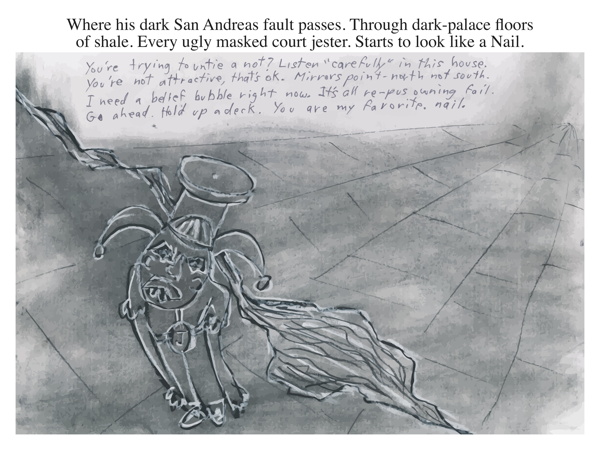 Where his dark San Andreas fault passes. Through dark-palace floors
of shale. Every ugly masked court jester. Starts to look like a Nail.
You're trying to untie a not? Listen "carefully" in this house.
You're not attractive, that's ok. Mirrors point north not south.
I need a belief bubble right now. It's all re-pus owning foil.
Go ahead. Hold up a deck. You are my favorite. nail.
J